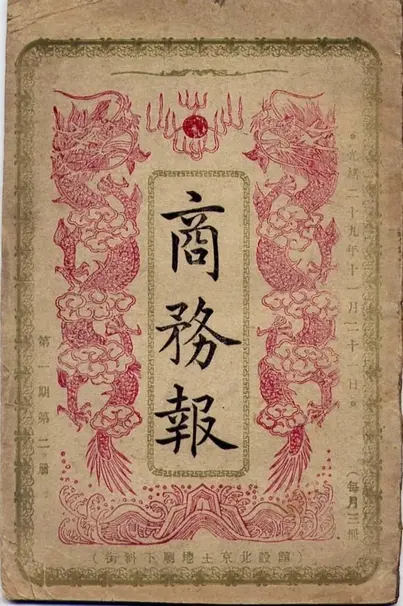 光緒二十九年十一月二十日
（每月三冊
商務報
第一期第二冊
（館設北京土地廟下斜街）